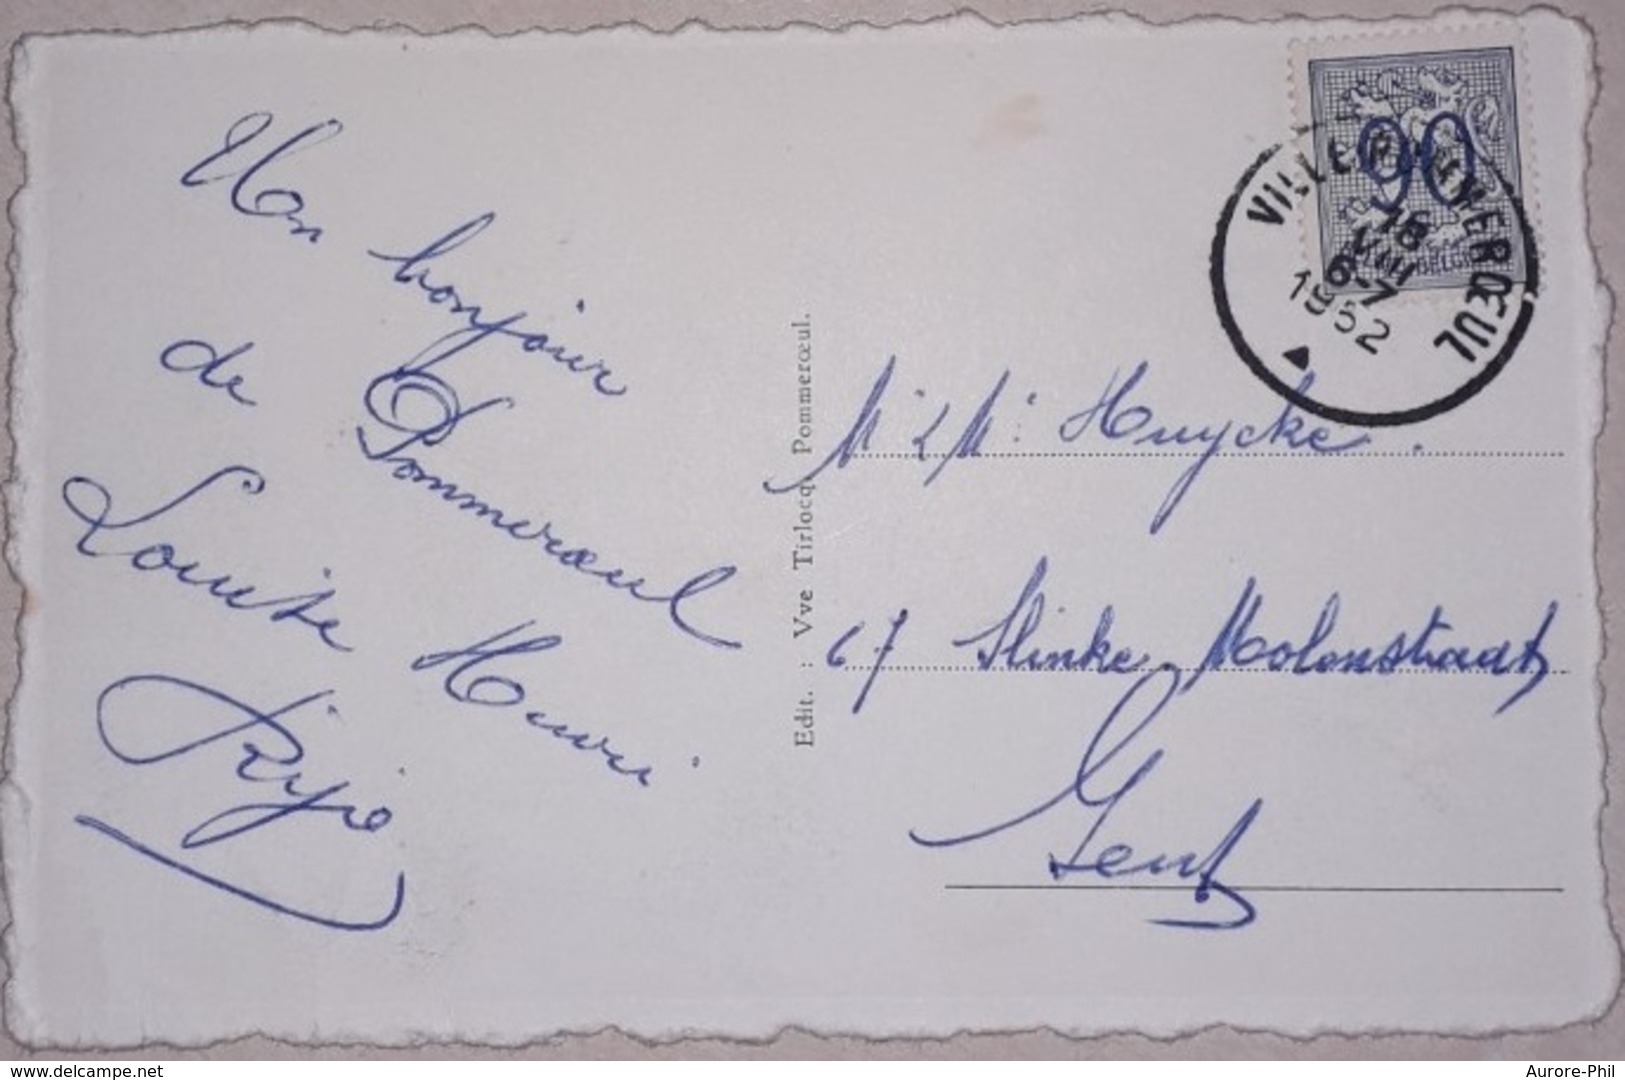 Un bonjour
de Pommerœul
Louise Henri
Edit. : Vve Tirlocq, Pommerœul.
90
BELGIË
VILLE-POMMERŒUL
16
VIII
6-7
1952
Mr & Me Huycke.
67 Slinke Molenstraat
Gent
www.delcampe.net
Aurore-Phil